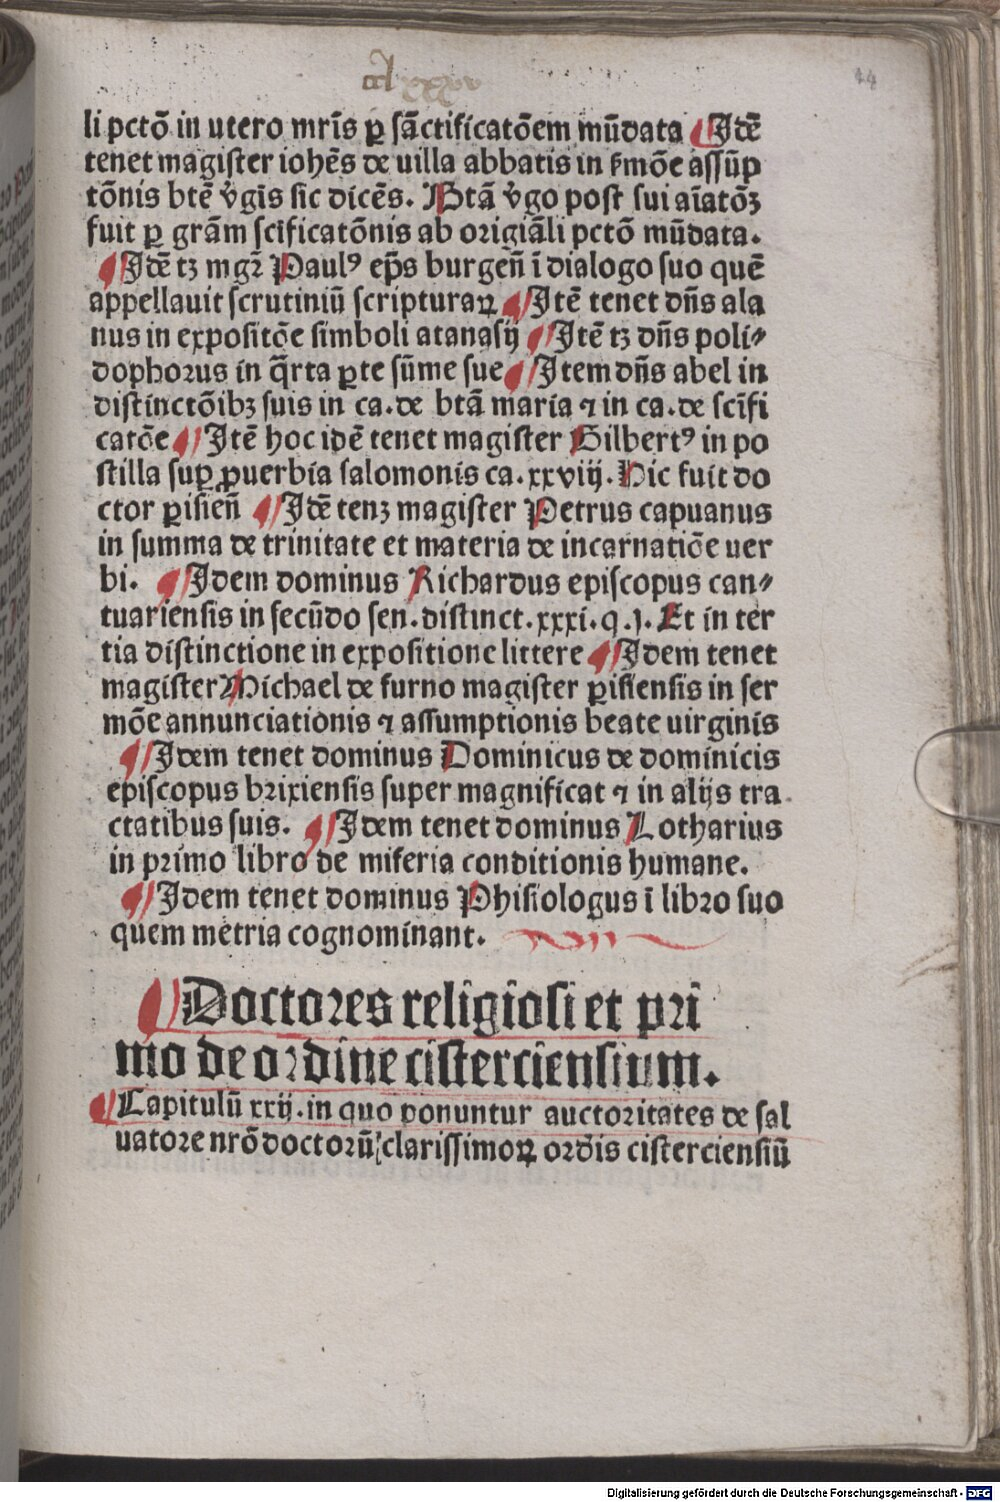 cclxxxv
44
li pctō in utero mr̄is ꝑ sāctificatōem mūdata Idē
tenet magister iohēs de uilla abbatis in ẜmōe assūp
tōnis btē v̄gīs sic dicēs. Btā v̄go post sui aīatōꝫ
fuit ꝑ grām scificatōnis ab origiāli pctō mūdata.
Idē tꝫ mgr̄ Paulꝰ ep̄s burgeñ ī dialogo suo quē
appellauit scrutiniū scripturaꝝ Itē tenet dn̄s ala
nus in expositōe simboli atanasij Itē tꝫ dn̄s poli⸗
dophorus in q̄rta ꝑte sūme sue Item dn̄s abel in
distinctōibꝫ suis in ca. de btā maria ⁊ in ca. de sc̄ifi
catōe Itē hoc idē tenet magister Gilbertꝰ in po
stilla suꝑ ꝓuerbia salomonis ca. xxviij. Hic fuit do
ctor ꝑisieñ Idē tenꝫ magister Petrus capuanus
in summa de trinitate et materia de incarnatiōe uer
bi. Idem dominus Richardus episcopus can⸗
tuariensis in secūdo sen. distinct. xxxi. q. j. Et in ter
tia distinctione in expositione littere Idem tenet
magister Michael de furno magister ꝑisiensis in ser
mōe annunciationis ⁊ assumptionis beate uirginis
Idem tenet dominus Dominicus de dominicis
episcopus brixiensis super magnificat ⁊ in alijs tra
ctatibus suis. Idem tenet dominus Lotharius
in primo libro de miseria conditionis humane.
Idem tenet dominus Phisiologus ī libro suo
quem metria cognominant.
Doctores religiosi et pri
mo de ordine cisterciensium.
Capitulū xxij. in quo ponuntur auctoritates de sal
uatore nrō doctorū clarissimoꝝ ordīs cisterciensiū
Digitalisierung gefördert durch die Deutsche Forschungsgemeinschaft - DFG